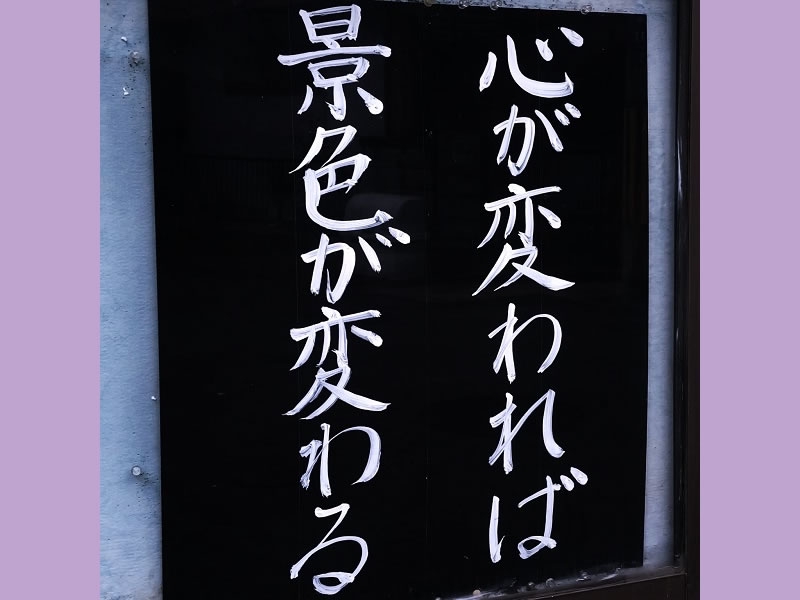 心が変われば
景色が変わる